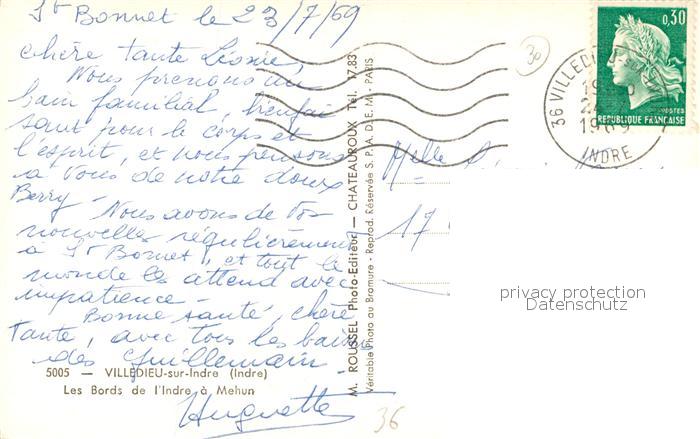 St Bonnet le 23/7/69
chère tante Léonie,
Nous prenons un
bain familial, bienfai
sant pour le corps et
l'esprit, et nous pensons
à vous de notre doux
Berry - Nous avons de vos
nouvelles régulièrement
à St Bonnet, et tout le
monde les attend avec
impatience -
Bonne santé, chère
Tante, avec tous les baisers
des Guillemain -
Huguette
5005 — VILLEDIEU-sur-Indre (Indre)
Les Bords de l'Indre à Mehun
M. ROUSSEL Photo-Editeur — CHATEAUROUX Tél. 17.83
Véritable Photo au Bromure - Reprod. Réservée S.P.A.D.E.M. - PARIS
30
36 VILLEDIEU
1969
INDRE
0,30
POSTES
REPUBLIQUE FRANÇAISE
Melle
17
privacy protection
Datenschutz
36